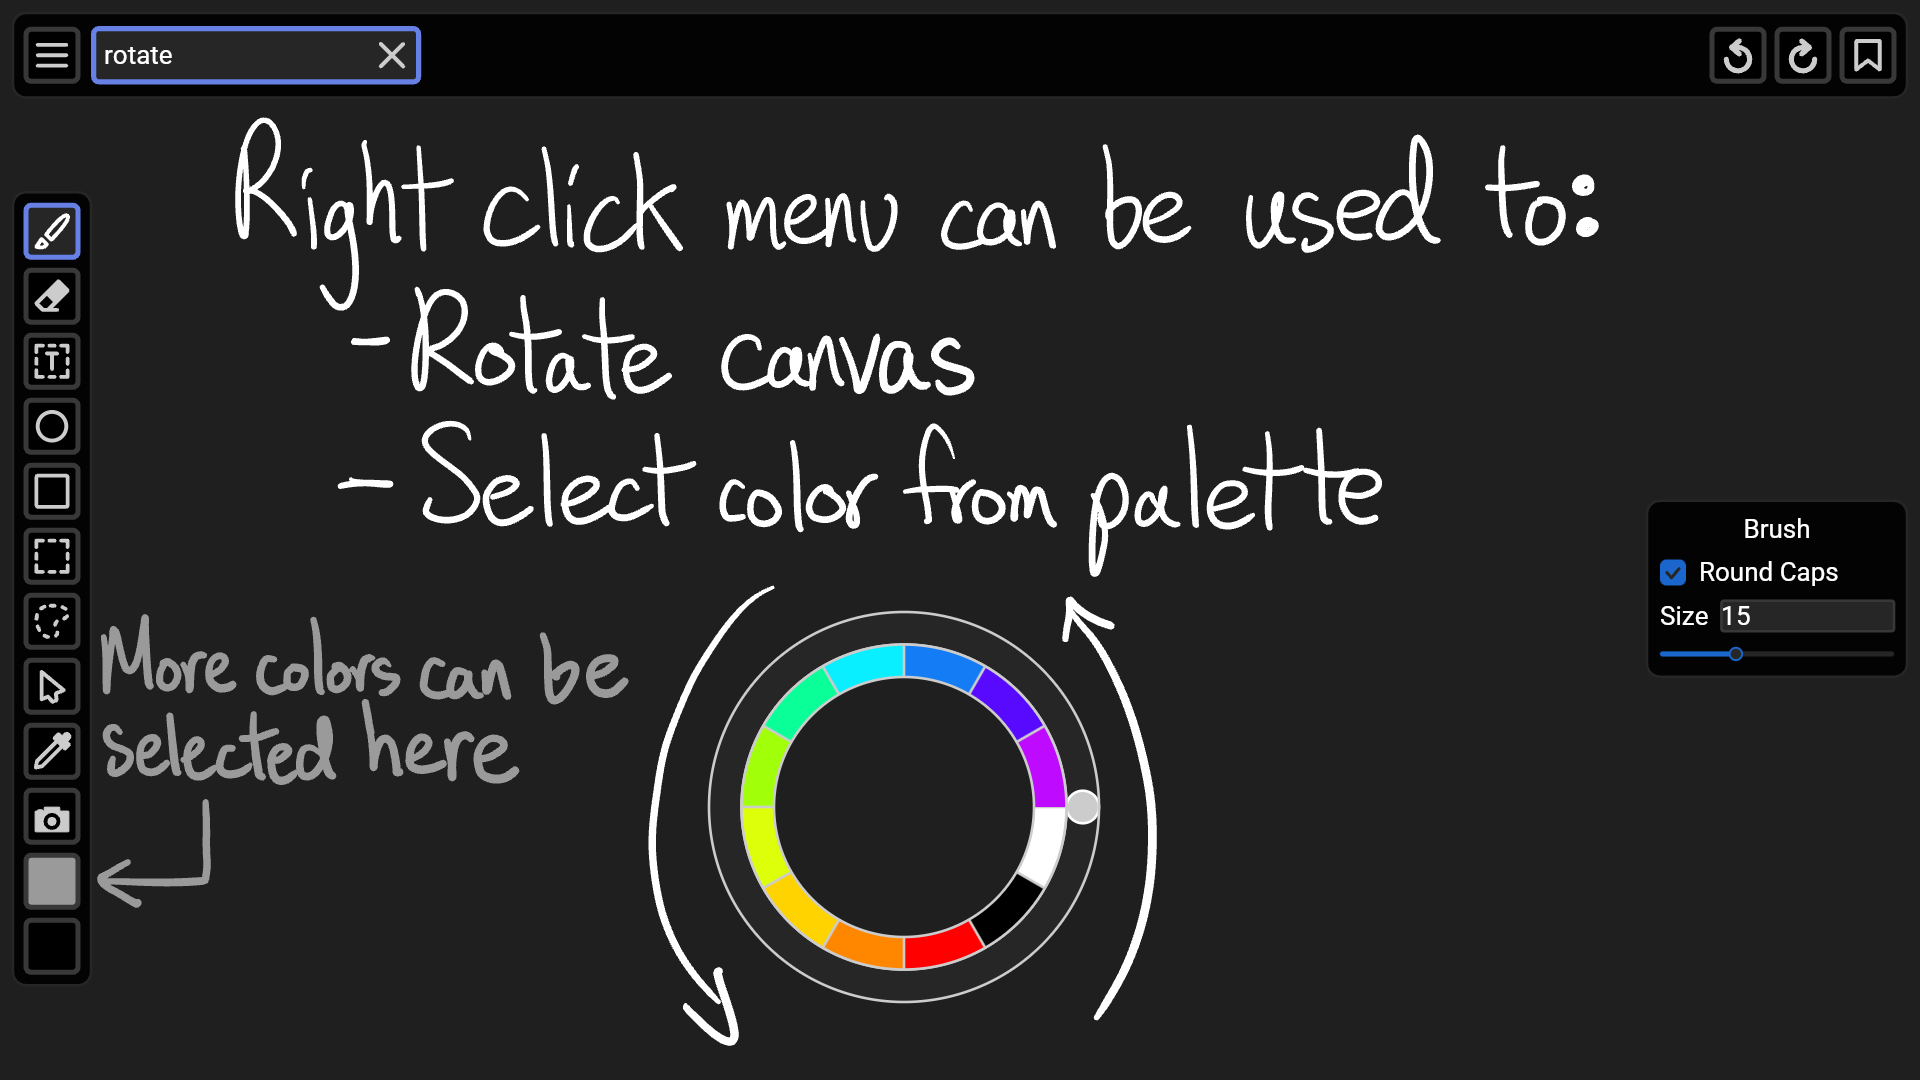 rotate
Right click menu can be used to:
- Rotate canvas
- Select color from palette
More colors can be
selected here
Brush
Round Caps
Size 15